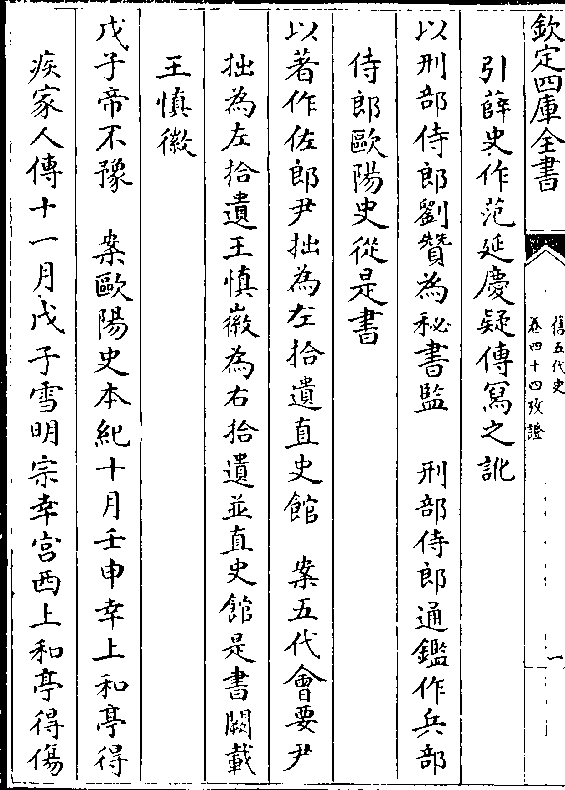 欽定四庫全書
舊五代史
卷四十四攷證
一
引薛史作范延慶疑傳寫之訛
以刑部侍郎劉贊為秘書監　刑部侍郎通鑑作兵部
侍郎歐陽史從是書
以著作佐郎尹拙為左拾遺直史館　案五代會要尹
拙為左拾遺王慎徽為右拾遺並直史館是書闕載
王慎徽
戊子帝不豫　案歐陽史本紀十月壬申幸上和亭得
疾家人傳十一月戊子雪明宗幸宮西上和亭得傷